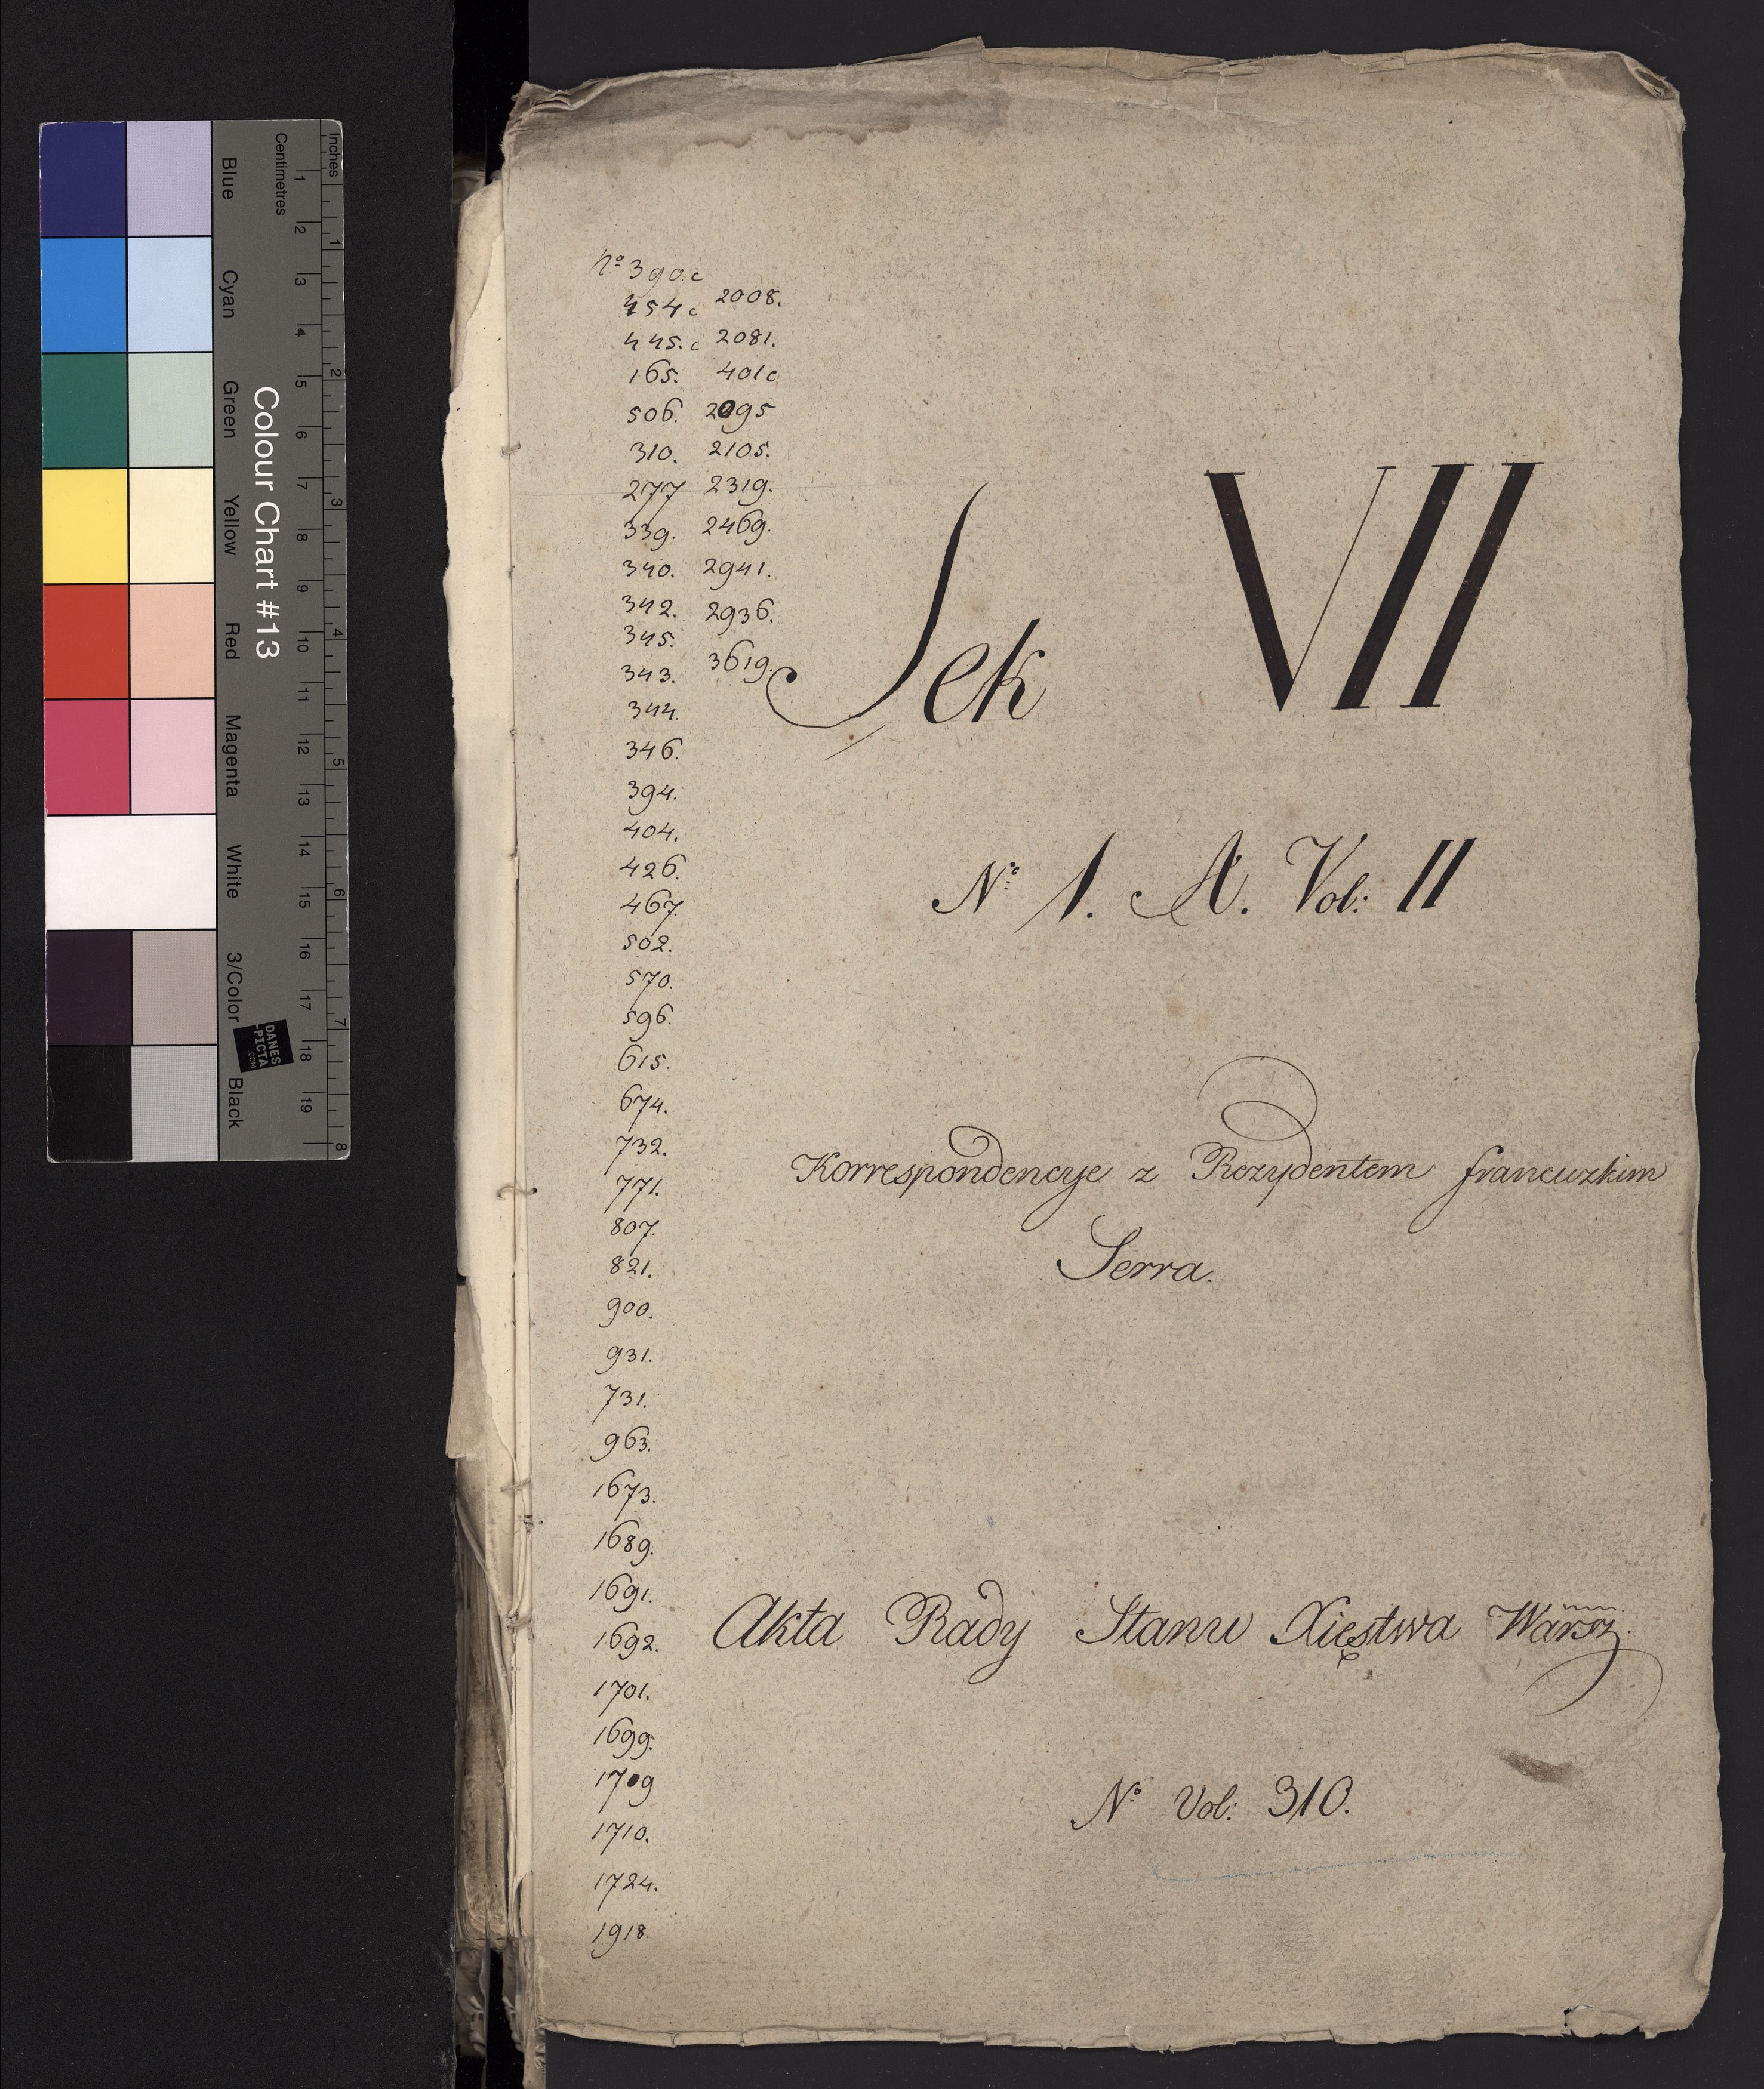 Inches
Centimetres
1 2 3 4 5 6 7 8
1 2 3 4 5 6 7 8 9 10 11 12 13 14 15 16 17 18 19
Colour Chart #13
Blue Cyan Green Yellow Red Magenta White 3/Color Black
DANES
-PICTA
.COM
No 390.c
454 c 2008.
445. c 2081.
165. 401c
506. 2095
310. 2105.
277 2319.
339. 2469.
340. 2941.
342. 2936.
345.
343. 3619.
344.
346.
394.
404.
426.
467.
502.
570.
596.
615.
674.
732.
771.
807.
821.
900.
931.
731.
963.
1673.
1689.
1691.
1692.
1701.
1699.
1709
1710.
1724.
1918.
Sek VII
No 1. A. Vol: II
Korrespondencye z Rezydentem francuzkim
Serra.
Akta Rady Stanu Xięstwa Warsz.
No Vol: 310.